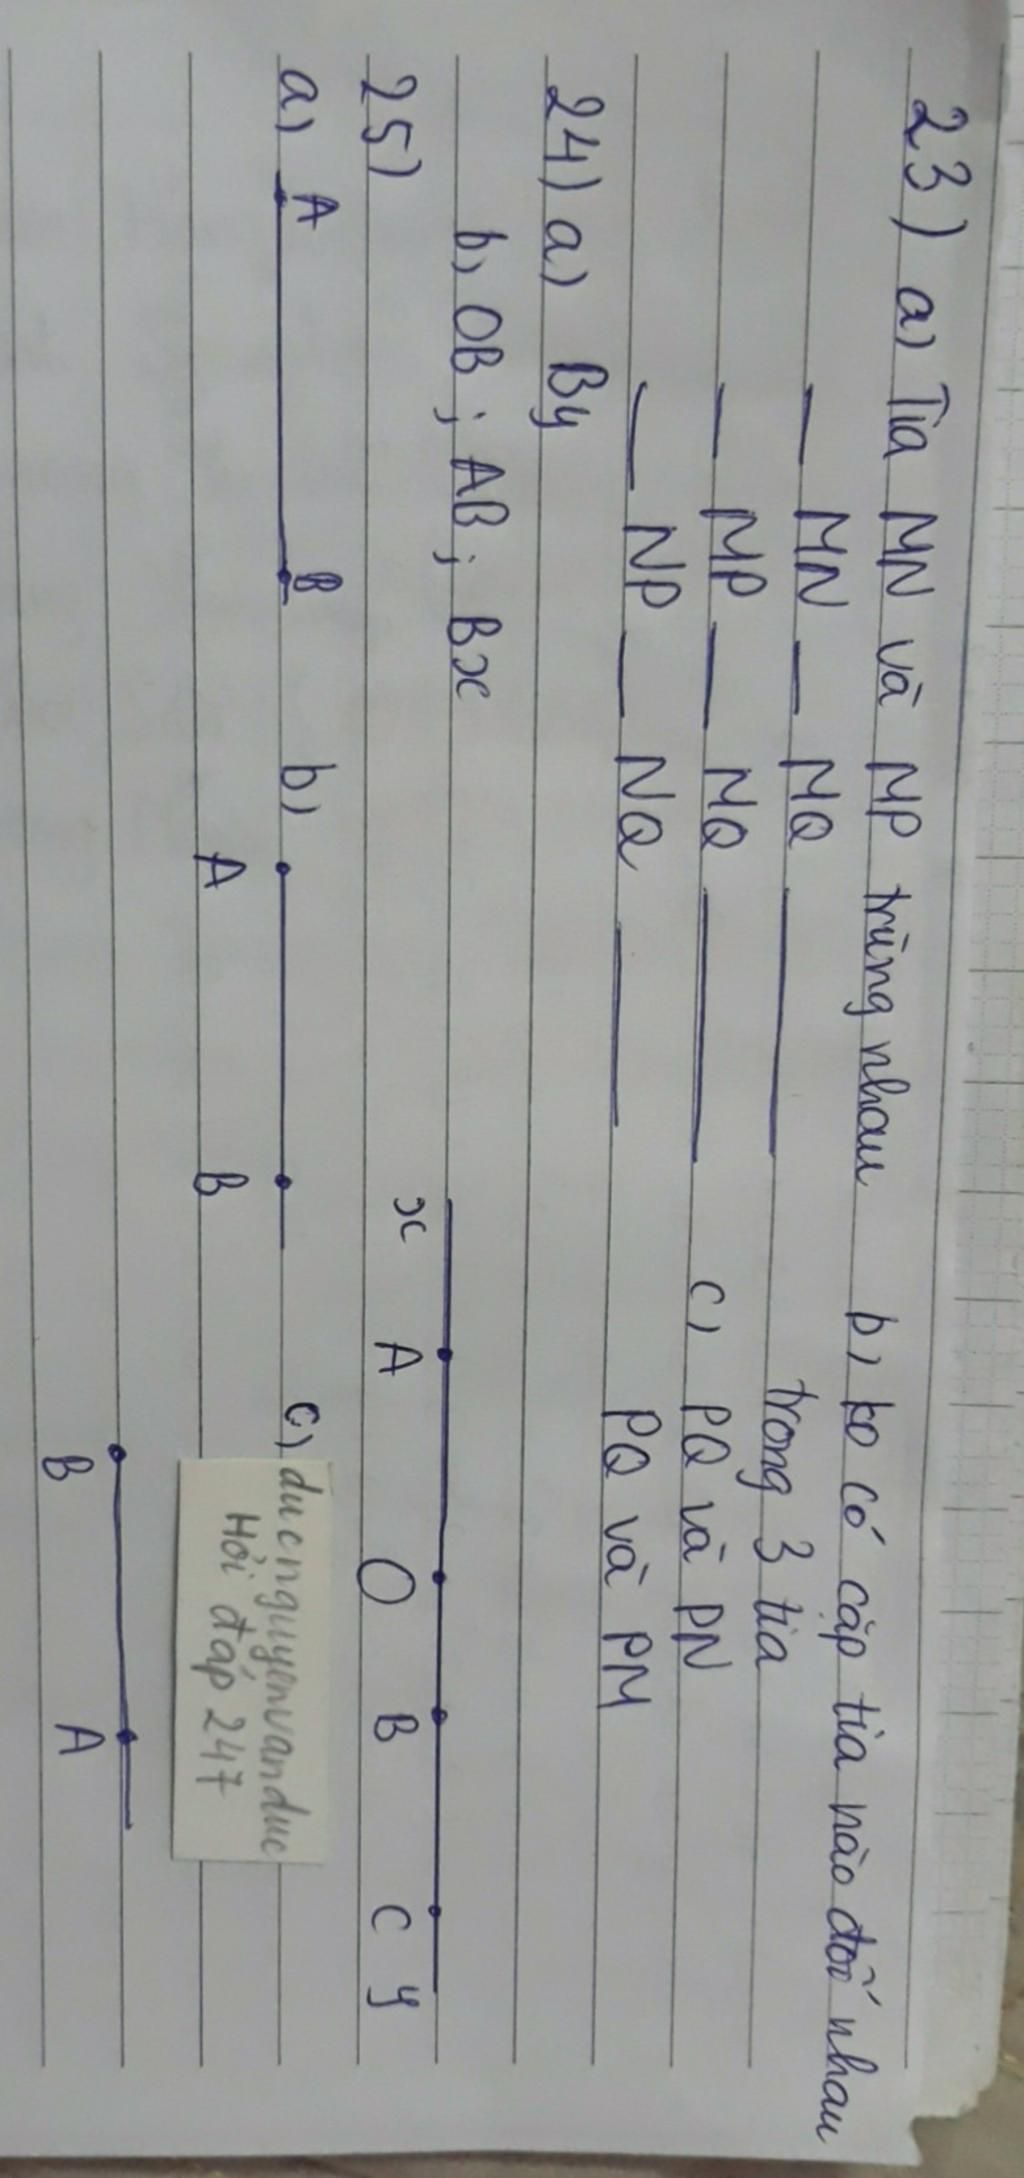 23) a) Tia MN và MP trùng nhau b) ko có cặp tia nào đối nhau
— MN — MQ — trong 3 tia
— MP — MQ — c) PQ và PN
— NP — NQ — PQ và PM
24) a) By
b) OB ; AB ; Bx
x A O B C y
25)
a) A B b) A B c)
ducnguyenvanduc
Hỏi đáp 247
B A